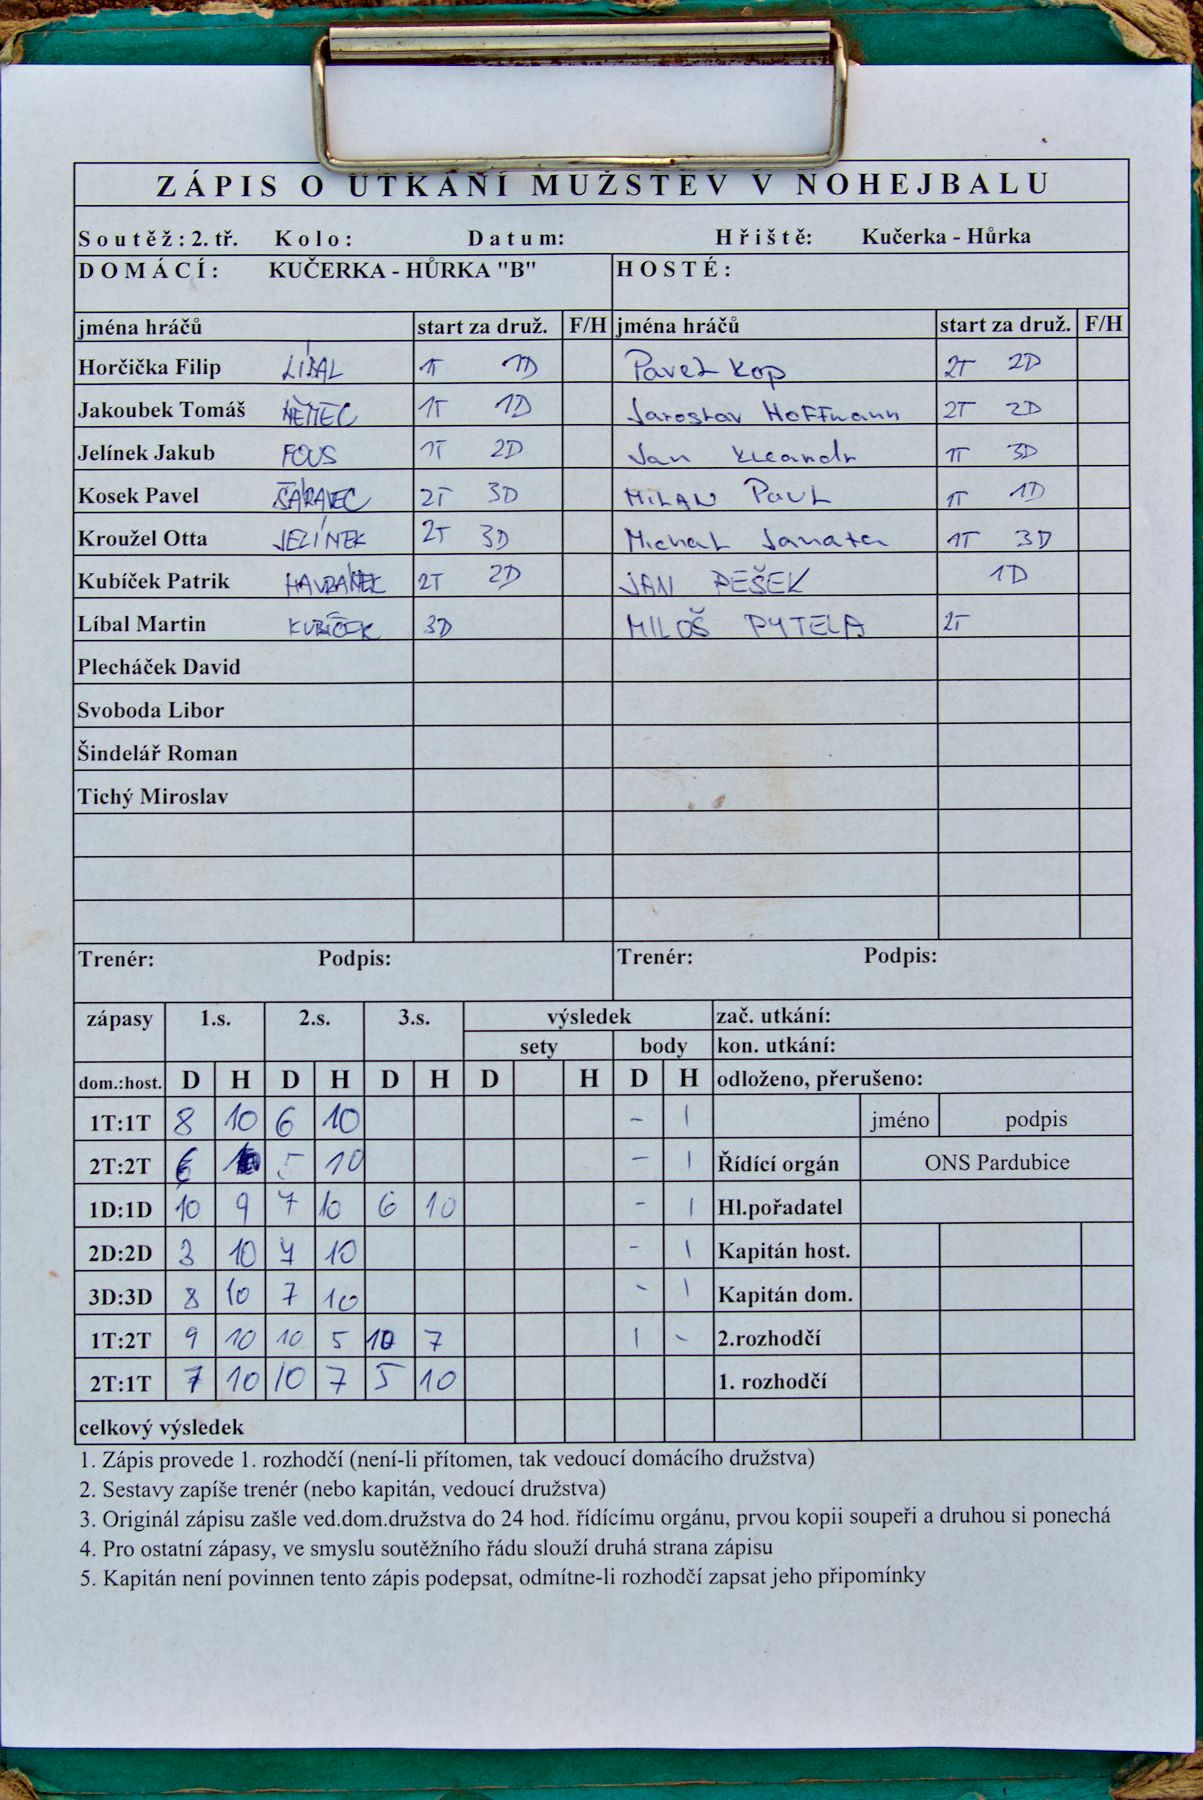 ZÁPIS O UTKÁNÍ MUŽSTEV V NOHEJBALU
Soutěž: 2. tř. Kolo: Datum: Hřiště: Kučerka - Hůrka
DOMÁCÍ: KUČERKA - HŮRKA "B" HOSTÉ:
jména hráčů start za druž. F/H jména hráčů start za druž. F/H
Horčička Filip LÍBAL 1T 1D Pavel Kop 2T 2D
Jakoubek Tomáš NĚMEC 1T 1D Jaroslav Hoffmann 2T 2D
Jelínek Jakub FOUS 1T 2D Jan 1T 3D
Kosek Pavel 2T 3D MILAN PAUL 1T 1D
Kroužel Otta JELÍNEK 2T 3D Michal Janata 1T 3D
Kubíček Patrik HAVRÁNEK 2T 2D JAN PEŠEK 1D
Líbal Martin KUBÍČEK 3D MILOŠ PYTELA 2T
Plecháček David
Svoboda Libor
Šindelář Roman
Tichý Miroslav
Trenér: Podpis: Trenér: Podpis:
zápasy 1.s. 2.s. 3.s. výsledek zač. utkání:
sety body kon. utkání:
dom.:host. D H D H D H D H D H odloženo, přerušeno:
1T:1T 8 10 6 10 - 1 jméno podpis
2T:2T 6 5 10 - 1 Řídící orgán ONS Pardubice
1D:1D 10 9 7 10 6 10 - 1 Hl.pořadatel
2D:2D 3 10 7 10 - 1 Kapitán host.
3D:3D 8 10 7 10 - 1 Kapitán dom.
1T:2T 9 10 10 5 10 7 1 - 2.rozhodčí
2T:1T 7 10 10 7 5 10 1. rozhodčí
celkový výsledek
1. Zápis provede 1. rozhodčí (není-li přítomen, tak vedoucí domácího družstva)
2. Sestavy zapíše trenér (nebo kapitán, vedoucí družstva)
3. Originál zápisu zašle ved.dom.družstva do 24 hod. řídícímu orgánu, prvou kopii soupeři a druhou si ponechá
4. Pro ostatní zápasy, ve smyslu soutěžního řádu slouží druhá strana zápisu
5. Kapitán není povinnen tento zápis podepsat, odmítne-li rozhodčí zapsat jeho připomínky